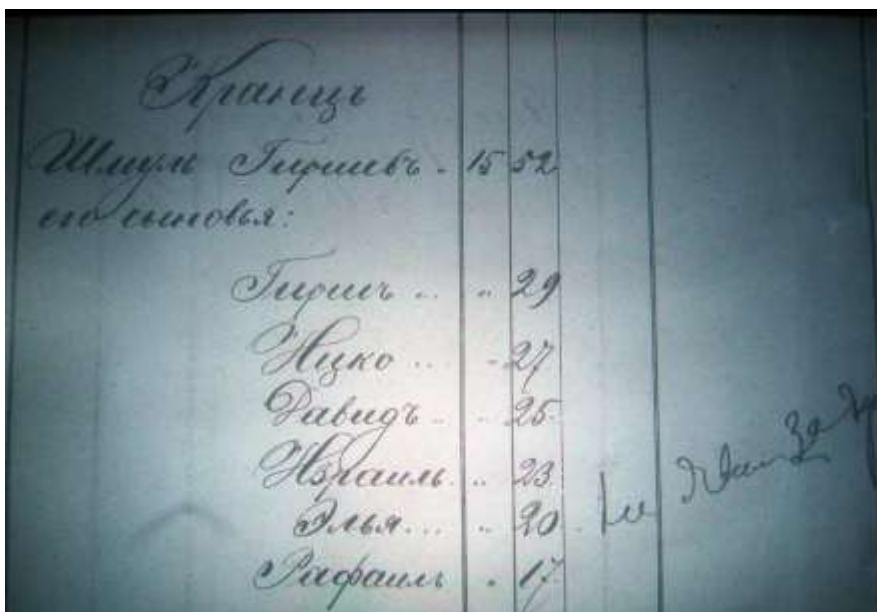 Кранцъ
Шмуль Гиршевъ - 15 52
его сыновья:
Гиршъ ... " 29
Ицко .... - 27
Давидъ .. - 25
Израиль. .. 23
Элья.... " 20
Рафаиль " 17